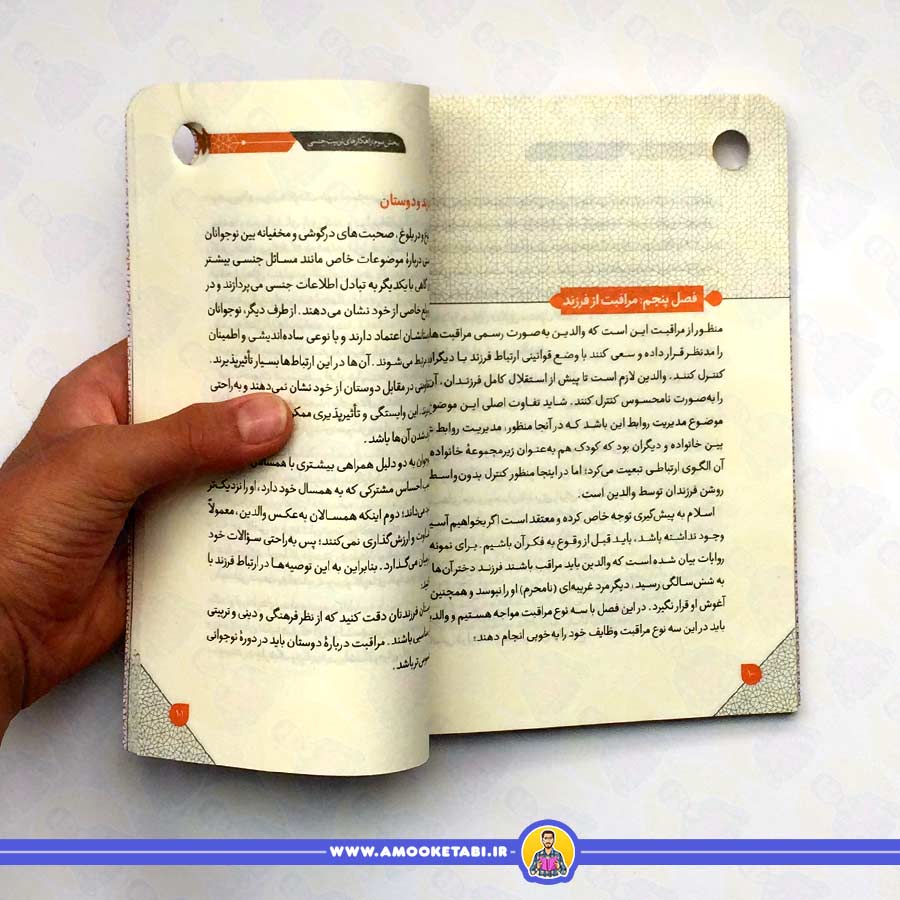 فصل پنجم: مراقبت از فرزند
منظور از مراقبت این است که والدین به‌صورت رسمی مراقبت‌ها
را مدنظر قرار داده و سعی کنند با وضع قوانینی ارتباط فرزند با دیگران
کنترل کنند. والدین لازم است تا پیش از استقلال کامل فرزندان، آن
را به‌صورت نامحسوس کنترل کنند. شاید تفاوت اصلی این موضوع
موضوع مدیریت روابط این باشد که در آنجا منظور، مدیریت روابط
بین خانواده و دیگران بود که کودک هم به‌عنوان زیرمجموعهٔ خانواده
آن الگوی ارتباطی تبعیت می‌کرد؛ اما در اینجا منظور کنترل بدون‌واسط
روشن فرزندان توسط والدین است.
اسلام به پیش‌گیری توجه خاص کرده و معتقد است اگر بخواهیم آسی
وجود نداشته باشد، باید قبل از وقوع به فکر آن باشیم. برای نمونه
روایات بیان شده است که والدین باید مراقب باشند فرزند دختر آن‌ها
به شش‌سالگی رسید، دیگر مرد غریبه‌ای (نامحرم) او را نبوسد و همچنین
آغوش او قرار نگیرد. در این فصل با سه نوع مراقبت مواجه هستیم و والد
باید در این سه نوع مراقبت وظایف خود را به‌خوبی انجام دهند:
۱۰۰
بخش سوم: راهکارهای تربیت جنسی
و دوستان
و در بلوغ، صحبت‌های درگوشی و مخفیانه بین نوجوانان
دربارهٔ موضوعات خاص مانند مسائل جنسی بیشتر
گاهی با یکدیگر به تبادل اطلاعات جنسی می‌پردازند و در
خاصی از خود نشان می‌دهند. از طرف دیگر، نوجوانان
اعتماد دارند و با نوعی ساده‌اندیشی و اطمینان
می‌شوند. آن‌ها در این ارتباط‌ها بسیار تأثیرپذیرند.
در مقابل دوستان از خود نشان نمی‌دهند و به‌راحتی
این وابستگی و تأثیرپذیری ممکن
شدن آن‌ها باشد.
به دو دلیل همراهی بیشتری با همسالان
احساس مشترکی که به همسال خود دارد، او را نزدیک‌تر
می‌داند؛ دوم اینکه همسالان به‌عکس والدین، معمولاً
و ارزش‌گذاری نمی‌کنند؛ پس به‌راحتی سؤالات خود
می‌گذارد. بنابراین به این توصیه‌ها در ارتباط فرزند با
فرزندتان دقت کنید که از نظر فرهنگی و دینی و تربیتی
باشند. مراقبت دربارهٔ دوستان باید در دورهٔ نوجوانی
تر باشد.
۱۰۱
WWW.AMOOKETABI.IR